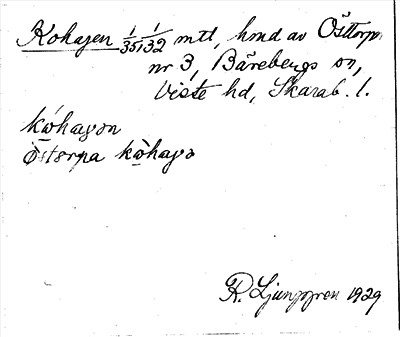 Kohagen 1/35, 1/32 mtl, hmd av Östtorp
nr 3, Bärebergs sn,
Viste hd, Skarab. l.
kohagan
östorpa kohaga
R. Ljunggren 1929